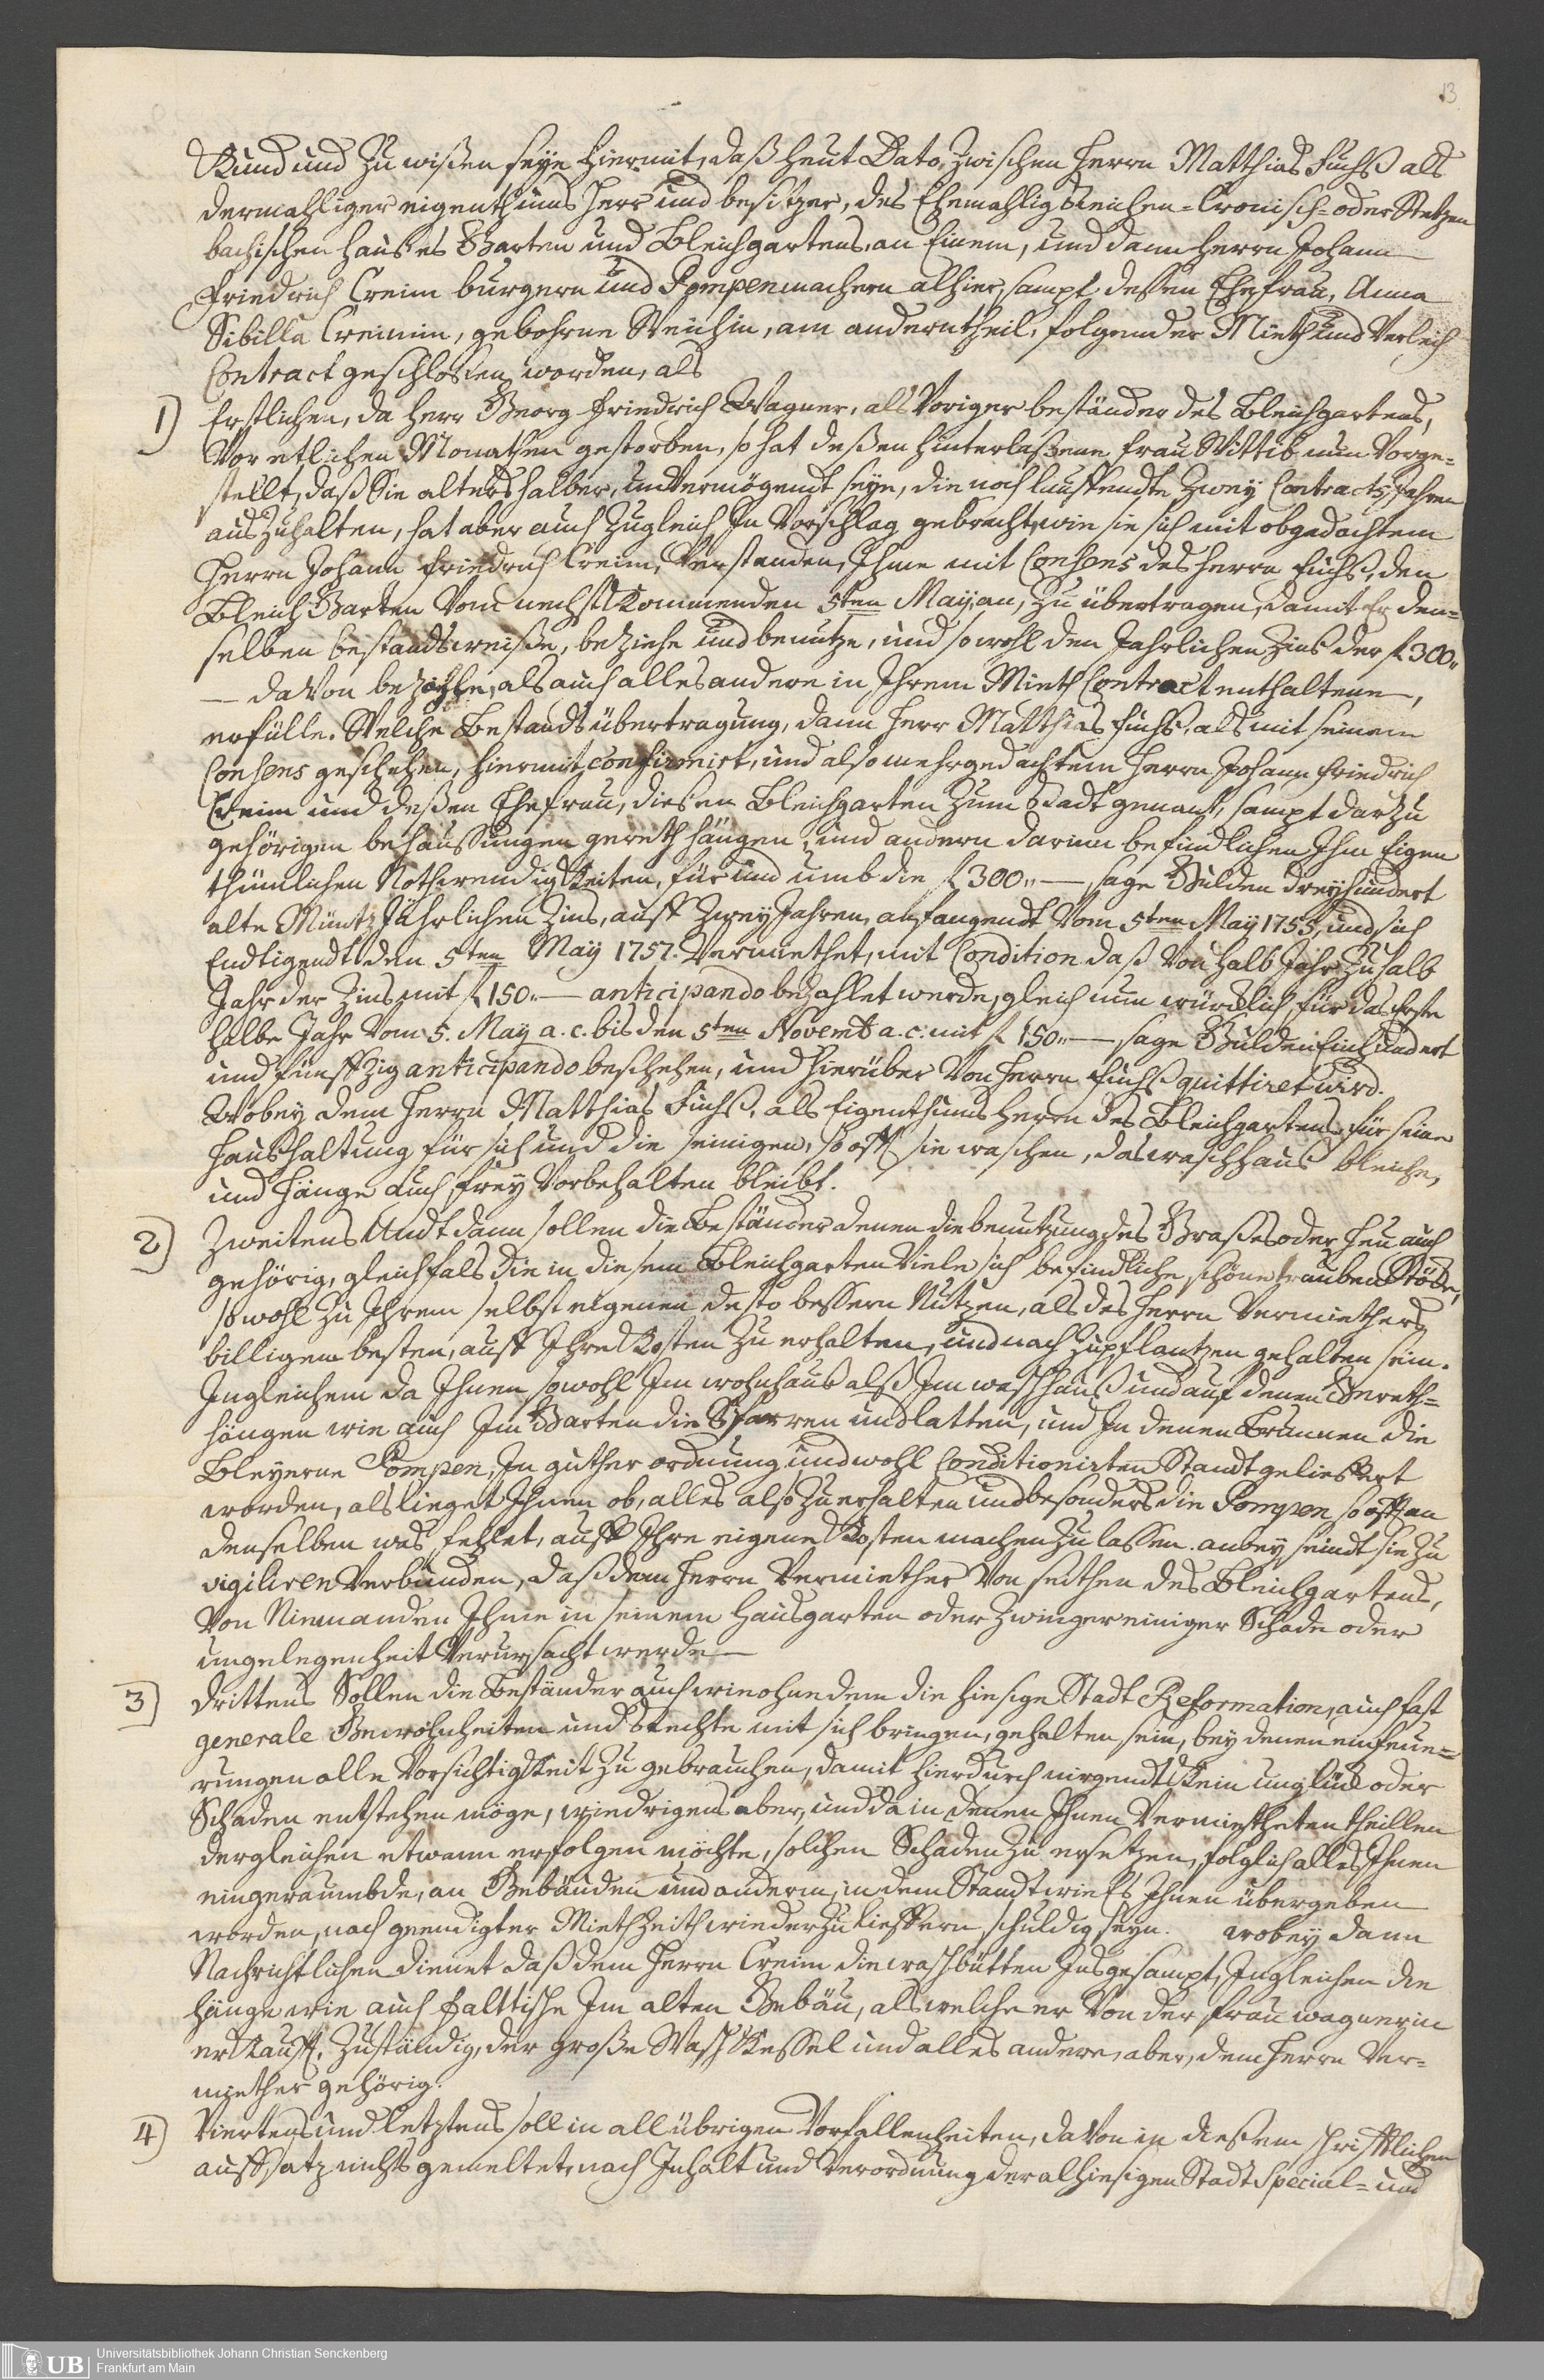 13
Kund und Zu wißen seye hiermit, daß heut Dato, zwischen Herrn Matthias Fuchß als
dermahliger eigenthums Herr und besitzer, des Ehemahlig Reichen-Cronisch- oder Stetzen
bachischen Haußes Garten und Bleichgartens, an Einem, und dann Herrn Johann
Friedrich Creim burgern und Pompenmachern alhier, sampt dessen Ehefrau, Anna
Sibilla Creimin, gebohrne Weichin, am anderntheil, folgender Mieth und Verleich
Contract geschlossen worden, als
1) Erstlichen, da Herr Georg Friedrich Wagner, als Voriger beständer des Bleichgartens,
Vor etlichen Monathen gestorben, so hat deßen hinterlaßene Frau Wittib nun Vorge-
stellt, daß Sie alters halber, unvermögendt seye, die noch lauffendte Zwey Contracts Jahren
auszuhalten, hat aber auch zugleich In Vorschlag gebracht, wie sie sich mit obgedachtem
Herrn Johann Friedrich Creim, Verstanden, Ihme mit Consens des Herrn Fuchß, den
Bleich Garten Vom nechst Kommenden 5ten May, an, zu übertragen, damit Er den-
selben bestandsweiße, beziehe und benutze, und sowohl den Jahrlichen Zins der f 300,,
— davon bezahle, als auch alles andere in Ihrem Mieth Contract enthaltene,
erfülle. Welche Bestands übertragung, dann Herr Matthias Fuchß, als mit seinem
Consens geschehen, hiermit confirmirt, und also mehrgedachtem Herrn Johann Friedrich
Creim und deßen Ehefrau, diesen Bleichgarten zum Badt genant, sampt darzu
gehörigen behaussungen gereth hängen, und andern darinn befindlichen Ihm Eigen
thümlichen Nothwendigkeiten, für und umb die f 300,,—, sage Gulden dreyhundert
alte Müntz Jährlichen Zins, auff Zwey Jahren, anfangendt Vom 5ten May 1755, und sich
Endtigendt den 5ten May 1757. Vermiethet, mit Condition daß Von halb Jahr zu halb
Jahr der Zins mit f 150,,— anticipando bezahlet werde, gleich nun würcklich für das Erste
halbe Jahr Vom 5. May a. c. bis den 5ten Novemb a. c. mit f 150,,—, sage Gulden Einhundert
und fünffzig anticipando beschehen, und hierüber Von Herrn Fuchß quittiret wird.
Wobey dem Herrn Matthias Fuchß, als Eigenthums Herrn des Bleichgartens, für seine
Haushaltung für sich und die seinigen, so offt sie waschen, das waschhaus bleiche,
und hänge auch frey Vorbehalten bleibt.
2) Zweitens Undt dann sollen die Beständer denen die benutzung des Graßes oder Heu auch
gehörig, gleichfals die in diesem Bleichgarten Viele sich befindliche, schöne trauben Stöcke,
sowohl zu Ihrem selbst eigenen desto bessern Nutzen, als des Herrn Vermiethers
billigem besten, auff Ihre Kosten zu erhalten, und nach zupflantzen gehalten sein.
Ingleichem da Ihnen sowohl Im wohnhauß alß Im waschhauß und auf denen Gereth-
hängen wie auch Im Garten die Sparren und latten, und In denen Brunnen die
Bleyerne Pompen, In guther ordnung und wohl Conditionirten Standt geliessert
worden, als lieget Ihnen ob, alles also zu erhalten und besonders die Pompen so offt an
denselben was fehlet, auff Ihre eigene Kosten machen zu lassen. anbey seindt sie zu
vigiliren Verbunden, daß dem Herrn Vermiether Von seithen des Bleichgartens,
Von Niemanden Ihme in seinem Hausgarten oder Zwinger einiger Schade oder
ungelegenheit Verursacht werde—
3) Drittens Sollen die Beständer auch wie ohne dem die hiesige Stadt Reformation, auch fast
generale Gewohnheiten und Rechte mit sich bringen, gehalten sein, bey denen einfeue-
rungen alle Vorsichtigkeit zu gebrauchen, damit hierdurch nirgendts kein unglück oder
Schaden entstehen möge, wiedrigens aber, und da in denen Ihnen Vermietheten theillen
dergleichen etwann erfolgen möchte, solchen Schaden zu ersetzen, folglich alles Ihnen
eingeraumbde, an Gebäuden und anderm, in dem Standt wie Es Ihnen übergeben
worden, nach geendigter Miethzeith wieder zu lieffern, schuldig seyn. wobey dann
Nachrichtlichen dienet daß dem Herrn Creim die waschbütten Insgesampt, Ingleichen die
hänge wie auch Falttische Im alten Gebäu, als welche er Von der Frau wagnerin
erkaufft, zuständig, der große Wasch Kessel und alles andere, aber, dem Herrn Ver-
miether gehörig.
4) Viertens und letztens soll in all übrigen Vorfallenheiten, davon in dießem schrifftlichen
auffsatz nichts gemeltet, nach Inhalt und Verordnung der alhiesigen Stadt Special- und
UB
Universitätsbibliothek Johann Christian Senckenberg
Frankfurt am Main